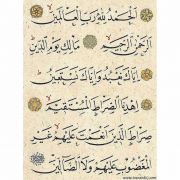 الْحَمْدُ لِلَّهِ رَبِّ الْعَالَمِينَ
الرَّحْمٰنِ الرَّحِيمِ مَالِكِ يَوْمِ الدِّينِ
إِيَّاكَ نَعْبُدُ وَإِيَّاكَ نَسْتَعِينُ
اهْدِنَا الصِّرَاطَ الْمُسْتَقِيمَ
صِرَاطَ الَّذِينَ أَنْعَمْتَ عَلَيْهِمْ غَيْرِ
الْمَغْضُوبِ عَلَيْهِمْ وَلَا الضَّالِّينَ